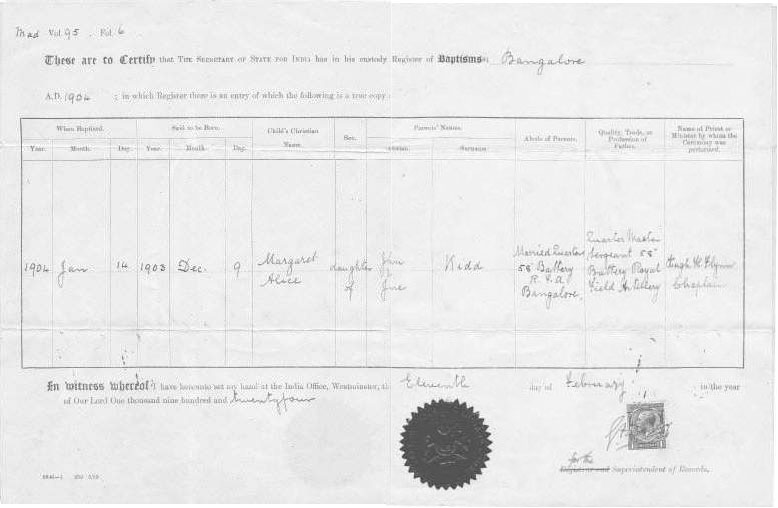 Mad Vol. 95 . Fol. 6
These are to Certify that THE SECRETARY OF STATE FOR INDIA has in his custody Register of Baptisms Bangalore
A.D. 1904 ; in which Register there is an entry of which the following is a true copy:
When Baptized. Said to be Born. Child's Christian Name. Sex. Parents' Names. Abode of Parents. Quality, Trade, or Profession of Father. Name of Priest or Minister by whom the Ceremony was performed.
Year. Month. Day. Year. Month. Day. Christian. Surname.
1904 Jan 14 1903 Dec. 9 Margaret Alice daughter of John & Kidd Married Quarters 58 Battery R.F.A Bangalore. Quarter Master Sergeant 58 Battery Royal Field Artillery Hugh H Flynn Chaplain
In witness whereof I have hereunto set my hand at the India Office, Westminster, th Eleventh day of February in the year
of Our Lord One thousand nine hundred and twentyfour
for the
Registrar and Superintendent of Records.